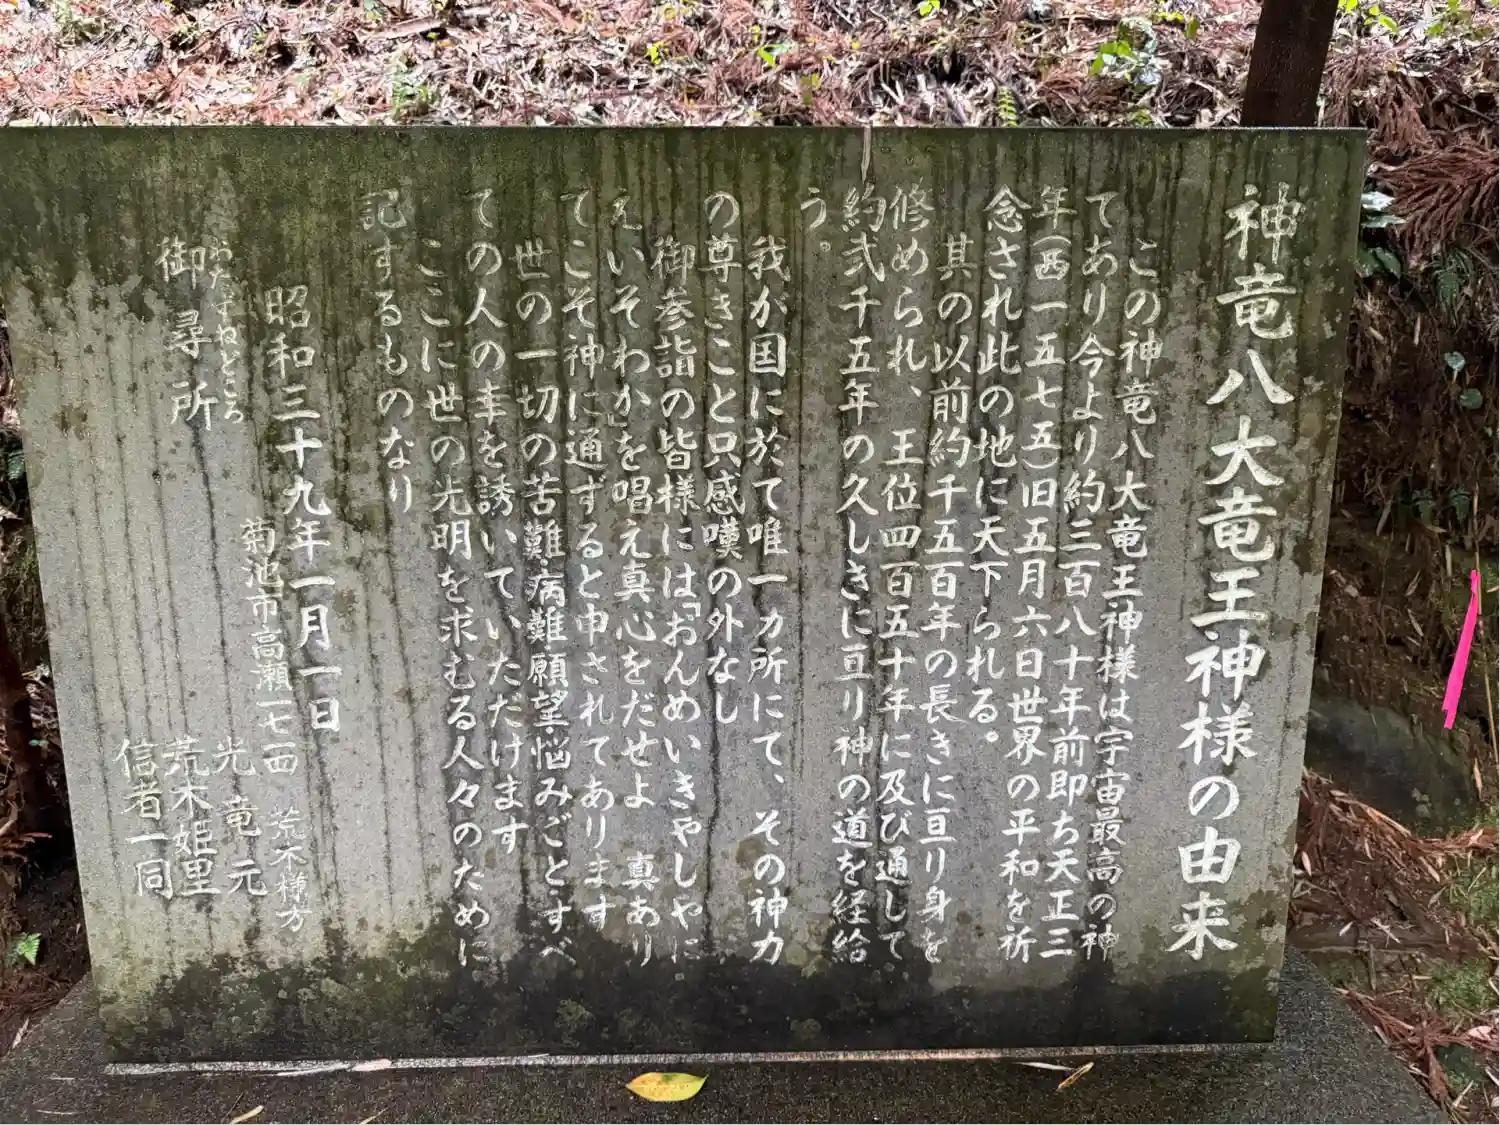 神竜八大竜王神様の由来
この神竜八大竜王神様は宇宙最高の神
てあり今より約三百八十年前即ち天正三
年(西一五七五)旧五月六日世界の平和を祈
念され此の地に天下られる。
其の以前約千五百年の長きに亘り身を
修められ、王位四百五十年に及び通して
約弐千五年の久しきに亘り神の道を経給
う。
我が国に於て唯一ヵ所にて、その神力
の尊きこと只感嘆の外なし
御参詣の皆様には「おんめいきやしやに
えいそわか」を唱え真心をだせよ 真あり
てこそ神に通ずると申されてあります
世の一切の苦難・病難・願望・悩みごとすべ
ての人の車を誘いていただけます
ここに世の光明を求むる人々のために
記するものなり
昭和三十九年一月一日
菊池市高瀬一七一四 荒木様方
おたずねどころ
御尋所
光竜元
荒木姫里
信者一同